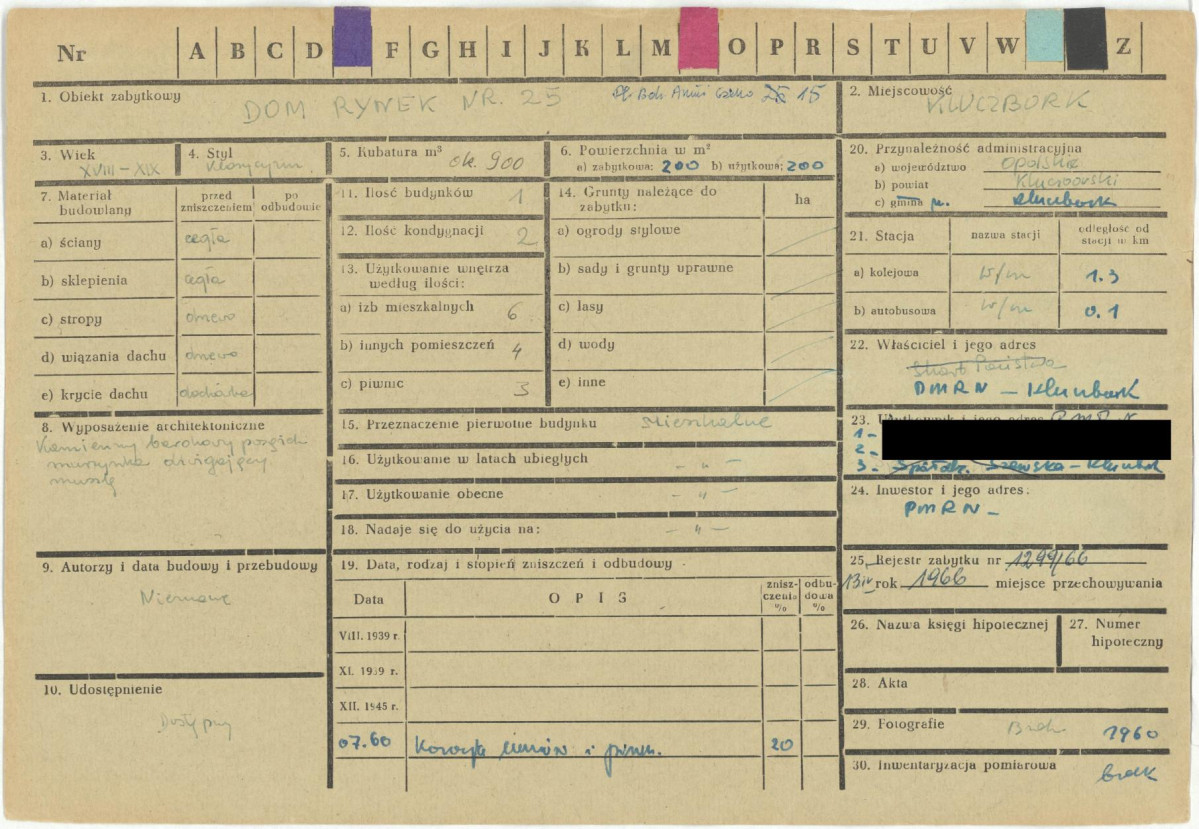 Nr A B C D F G H I J K L M O P R S T U V W Z
1. Obiekt zabytkowy
DOM RYNEK NR. 25 15
2. Miejscowość
KLUCZBORK
3. Wiek
XVIII – XIX
4. Styl
Klasycyzm
5. Kubatura m³ ok. 900
6. Powierzchnia w m²
a) zabytkowa: 200 b) użytkowa: 200
20. Przynależność administracyjna
a) województwo Opolskie
b) powiat Kluczborski
c) gmina m. Kluczbork
7. Materiał budowlany
przed zniszczeniem
po odbudowie
a) ściany cegła
b) sklepienia cegła
c) stropy drewno
d) wiązania dachu drewno
e) krycie dachu dachówka
11. Ilość budynków 1
12. Ilość kondygnacji 2
13. Użytkowanie wnętrza
według ilości:
a) izb mieszkalnych 6
b) innych pomieszczeń 4
c) piwnic 3
14. Grunty należące do
zabytku:
ha
a) ogrody stylowe
b) sady i grunty uprawne
c) lasy
d) wody
e) inne
21. Stacja
nazwa stacji
odległość od
stacji w km
a) kolejowa w/m 1.3
b) autobusowa w/m 0.1
22. Właściciel i jego adres
Skarb Państwa
PMRN – Kluczbork
8. Wyposażenie architektoniczne
Kamienny barokowy posążek
murzynka dźwigający
muszlę
15. Przeznaczenie pierwotne budynku Mieszkalne
16. Użytkowanie w latach ubiegłych – „ –
17. Użytkowanie obecne – „ –
18. Nadaje się do użycia na: – „ –
23. Użytkownik i jego adres
1 –
2 –
3 – Spółdz. Szewska – Kluczbork
24. Inwestor i jego adres:
PMRN –
9. Autorzy i data budowy i przebudowy
Nieznane
10. Udostępnienie
Dostępny
19. Data, rodzaj i stopień zniszczeń i odbudowy
Data
OPIS
znisz-
czenia
%
odbu-
dowa
%
VIII. 1939 r.
XI. 1939 r.
XII. 1945 r.
07.60 Korozja murów i 20
25. Rejestr zabytku nr 1299/66
13 IV rok 1966 miejsce przechowywania
26. Nazwa księgi hipotecznej
27. Numer
hipoteczny
28. Akta
29. Fotografie 1960
30. Inwentaryzacja pomiarowa brak